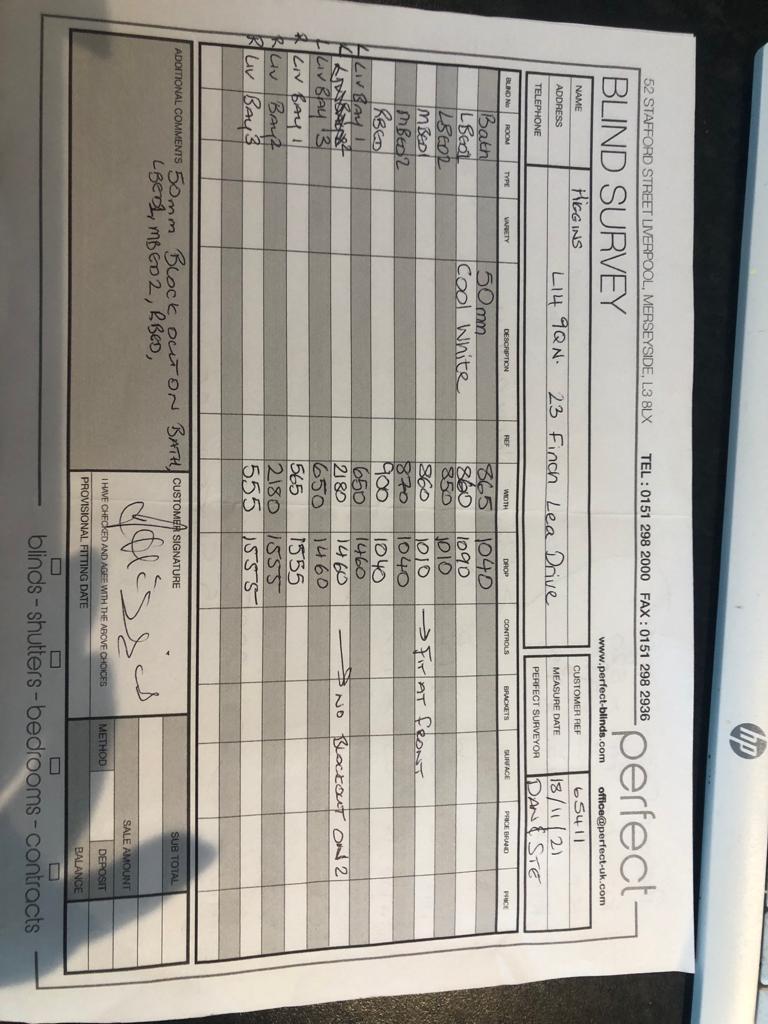 52 STAFFORD STREET LIVERPOOL, MERSEYSIDE, L3 8LX TEL : 0151 298 2000 FAX : 0151 298 2936
perfect
BLIND SURVEY
www.perfect-blinds.com office@perfect-uk.com
NAME HIGGINS
ADDRESS L14 9QN. 23 Finch Lea Drive
TELEPHONE
CUSTOMER REF 65411
MEASURE DATE 18/11/21
PERFECT SURVEYOR DAN & STE
BLIND No ROOM TYPE VARIETY DESCRIPTION REF WIDTH DROP CONTROLS BRACKETS SURFACE PRICE BRAND PRICE
Bath 50mm 865 1040
LBED1 Cool White 860 1090
LBED2 850 1010
MBED1 860 1010 → FIT AT FRONT
MBED2 870 1040
RBED 900 1040
L LIV BAY 1 650 1460
2180 1460 → NO BLOCKOUT ON 2
L LIV BAY 3 650 1460
R LIV BAY 1 565 1555
R LIV BAY 2 2180 1555
R LIV BAY 3 555 1555
ADDITIONAL COMMENTS 50mm BLOCK OUT ON BATH,
LBED1, MBED2, RBED,
CUSTOMER SIGNATURE
I HAVE CHECKED AND AGREE WITH THE ABOVE CHOICES
PROVISIONAL FITTING DATE
SUB TOTAL
SALE AMOUNT
METHOD DEPOSIT
BALANCE
blinds - shutters - bedrooms - contracts
hp